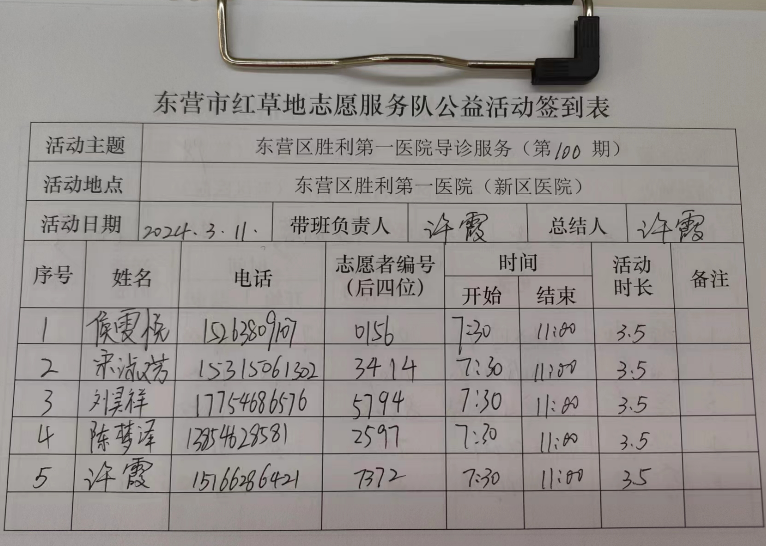 东营市红草地志愿服务队公益活动签到表
活动主题 东营区胜利第一医院导诊服务（第100期）
活动地点 东营区胜利第一医院（新区医院）
活动日期 2024.3.11. 带班负责人 许霞 总结人 许霞
序号 姓名 电话 志愿者编号（后四位） 时间 开始 结束 活动时长 备注
1 侯雯悦 15263809107 0156 7:30 11:00 3.5
2 宋淑芳 15315061302 3414 7:30 11:00 3.5
3 刘昊祥 17754686576 5794 7:30 11:00 3.5
4 陈梦泽 13854628581 2597 7:30 11:00 3.5
5 许霞 15166286421 7372 7:30 11:00 3.5